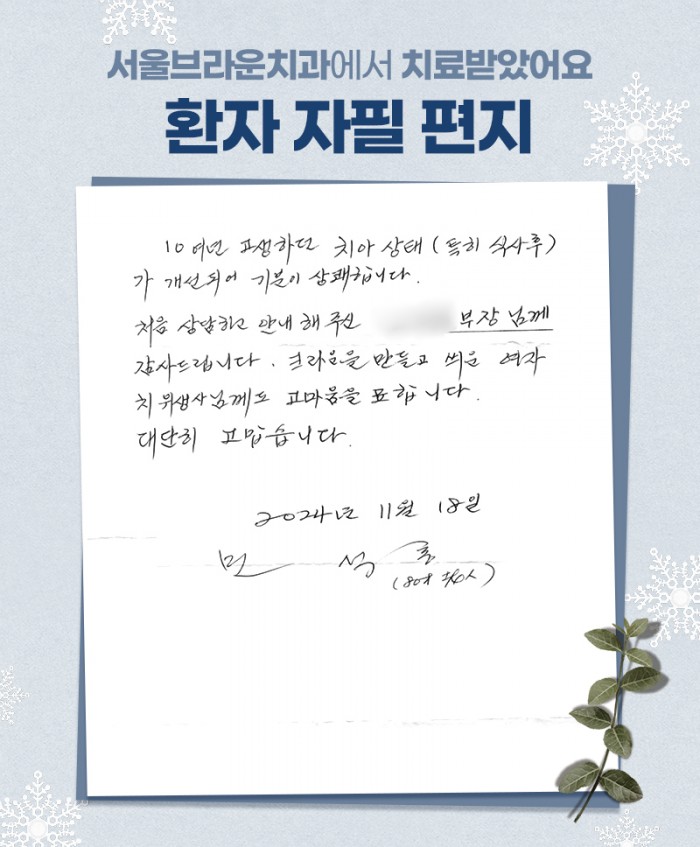 서울브라운치과에서 치료받았어요
환자 자필 편지
10여년 고생하던 치아 상태 (특히 식사후)
가 개선되어 기분이 상쾌합니다.
처음 상담하고 안내 해 주신 부장님께
감사드립니다. 크라운을 만들고 씌운 여자
치위생사님께도 고마움을 표합니다.
대단히 고맙습니다.
2024년 11월 18일
민 석